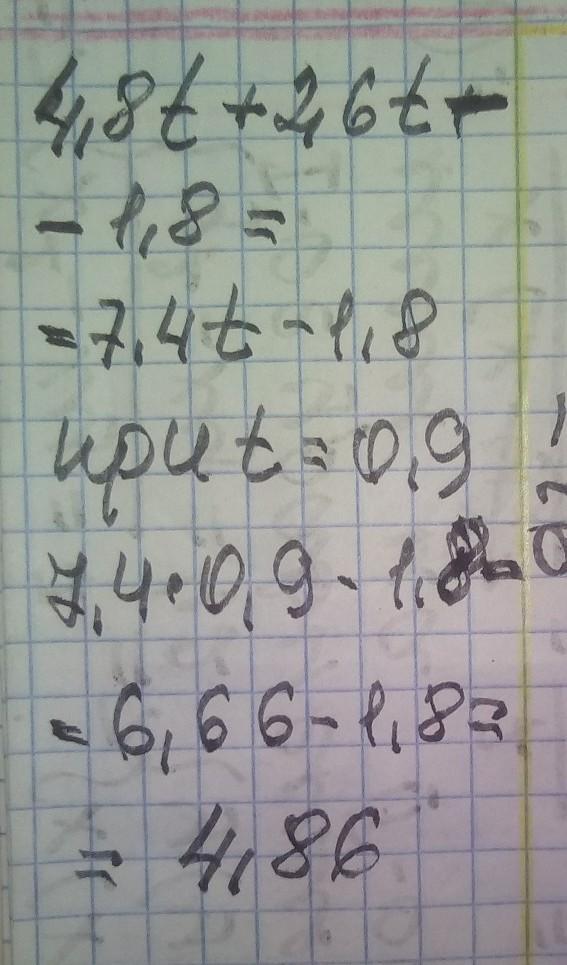 4,8t + 2,6t -
- 1,8 =
= 7,4t - 1,8
при t = 0,9
7,4 · 0,9 - 1,8 =
= 6,66 - 1,8 =
= 4,86